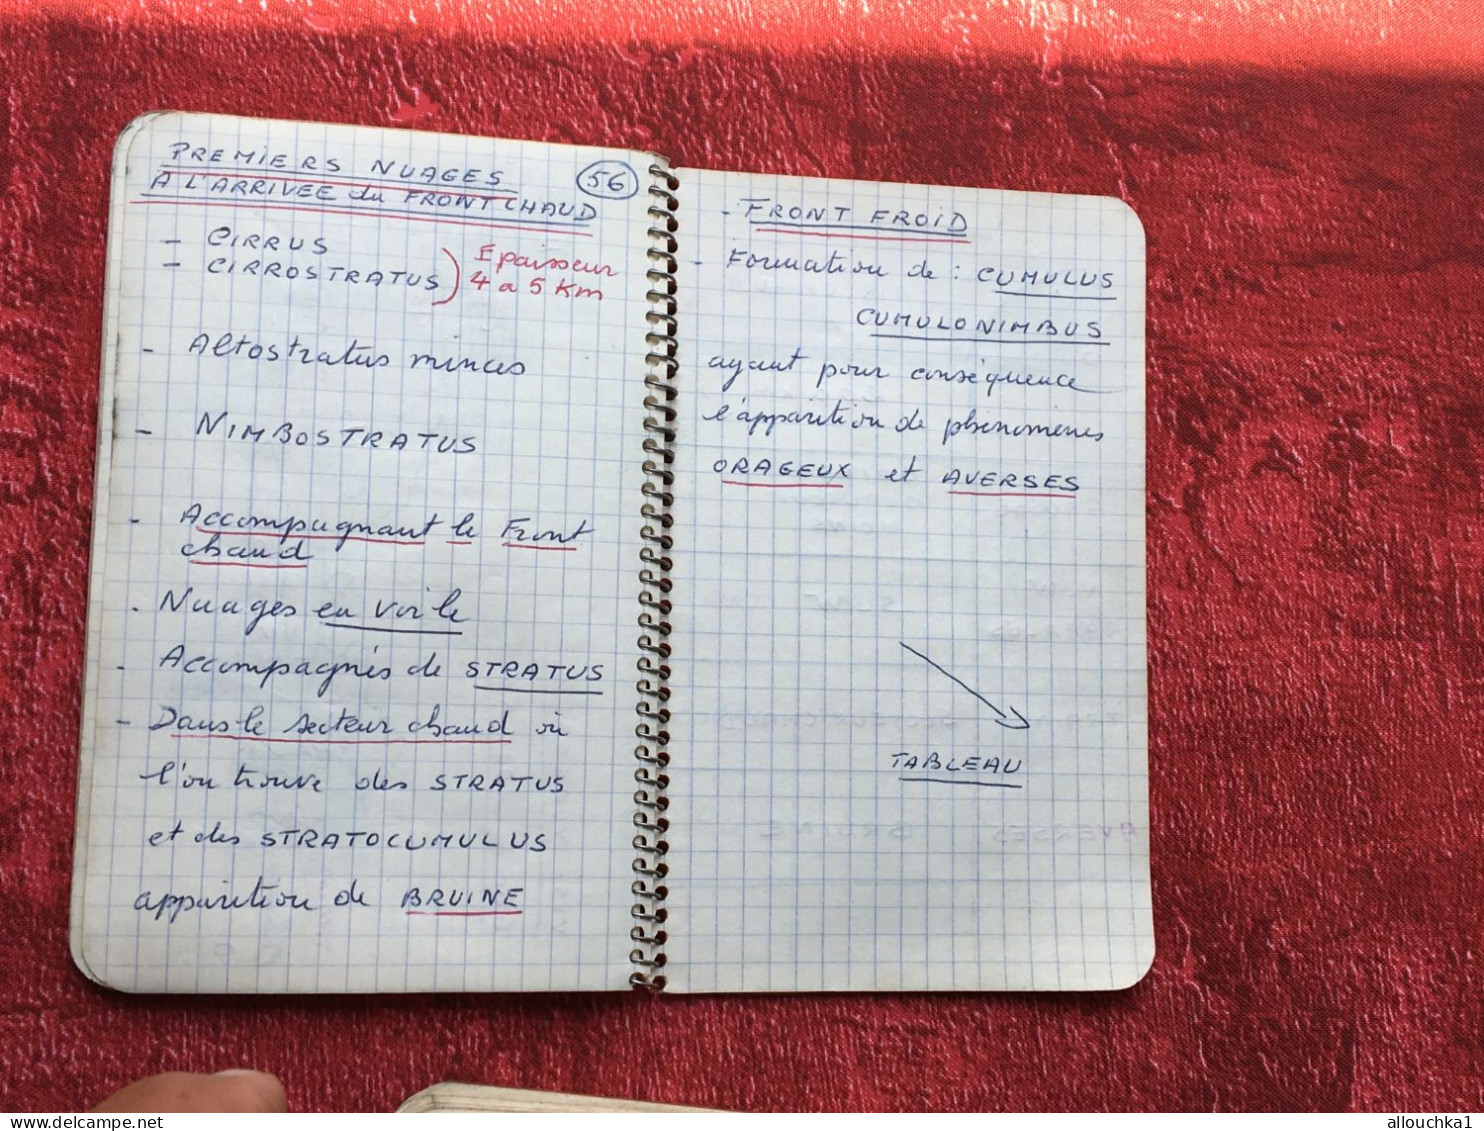 PREMIERS NUAGES
A L'ARRIVEE du FRONT CHAUD
56
- CIRRUS
- CIRROSTRATUS
Epaisseur
4 a 5 Km
- Altostratus minces
- NIMBOSTRATUS
- Accompagnant le Front
chaud
- Nuages en voile
- Accompagnés de STRATUS
- Dans le secteur chaud où
l'on trouve des STRATUS
et des STRATOCUMULUS
apparition de BRUINE
- FRONT FROID
- Formation de : CUMULUS
CUMULONIMBUS
ayant pour conséquence
l'apparition de phénomènes
ORAGEUX et AVERSES
TABLEAU
allouchka1